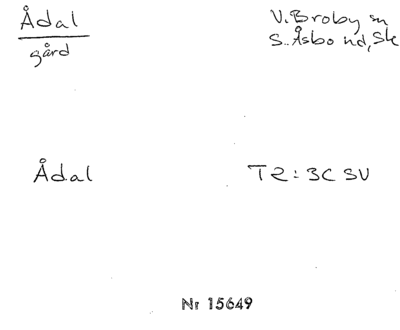 Ådal
gård
V. Broby sn
S. Åsbo hd, Sk
Ådal
T2: 3C SV
Nr 15649